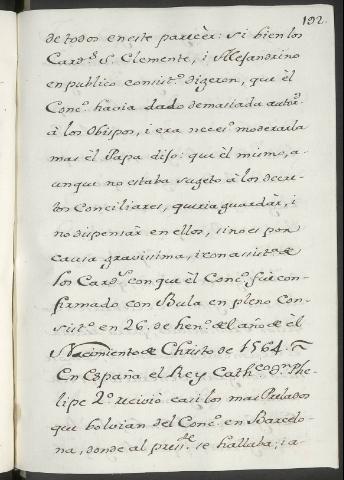 192
de todos en este parecèr: si bien los
Card.s S. Clemente, i Alejandrino
en publico consist.o dijeron, que èl
Conc.o havia dado demasiada autor.d
à los Obispos, i era neces.o moderarla
mas èl Papa dijo: que èl mismo, a-
unque no estaba sugeto à los decre-
tos Conciliares, queria guardàr, i
no dispensàr en ellos, sino es por
causa gravissima, i con assist.a de
los Card.s con que èl Conc.o fue con-
firmado con Bula en pleno Con-
sist.o en 26. de hen.o del año de èl
Nacimiento de Christo de 1564.
En España el Rey Cath.co D.n Phe-
lipe 2.o recivió casi los mas Prelados
que bolvian del Conc.o en Barcelo-
na, donde al pres.te se hallaba; i a-